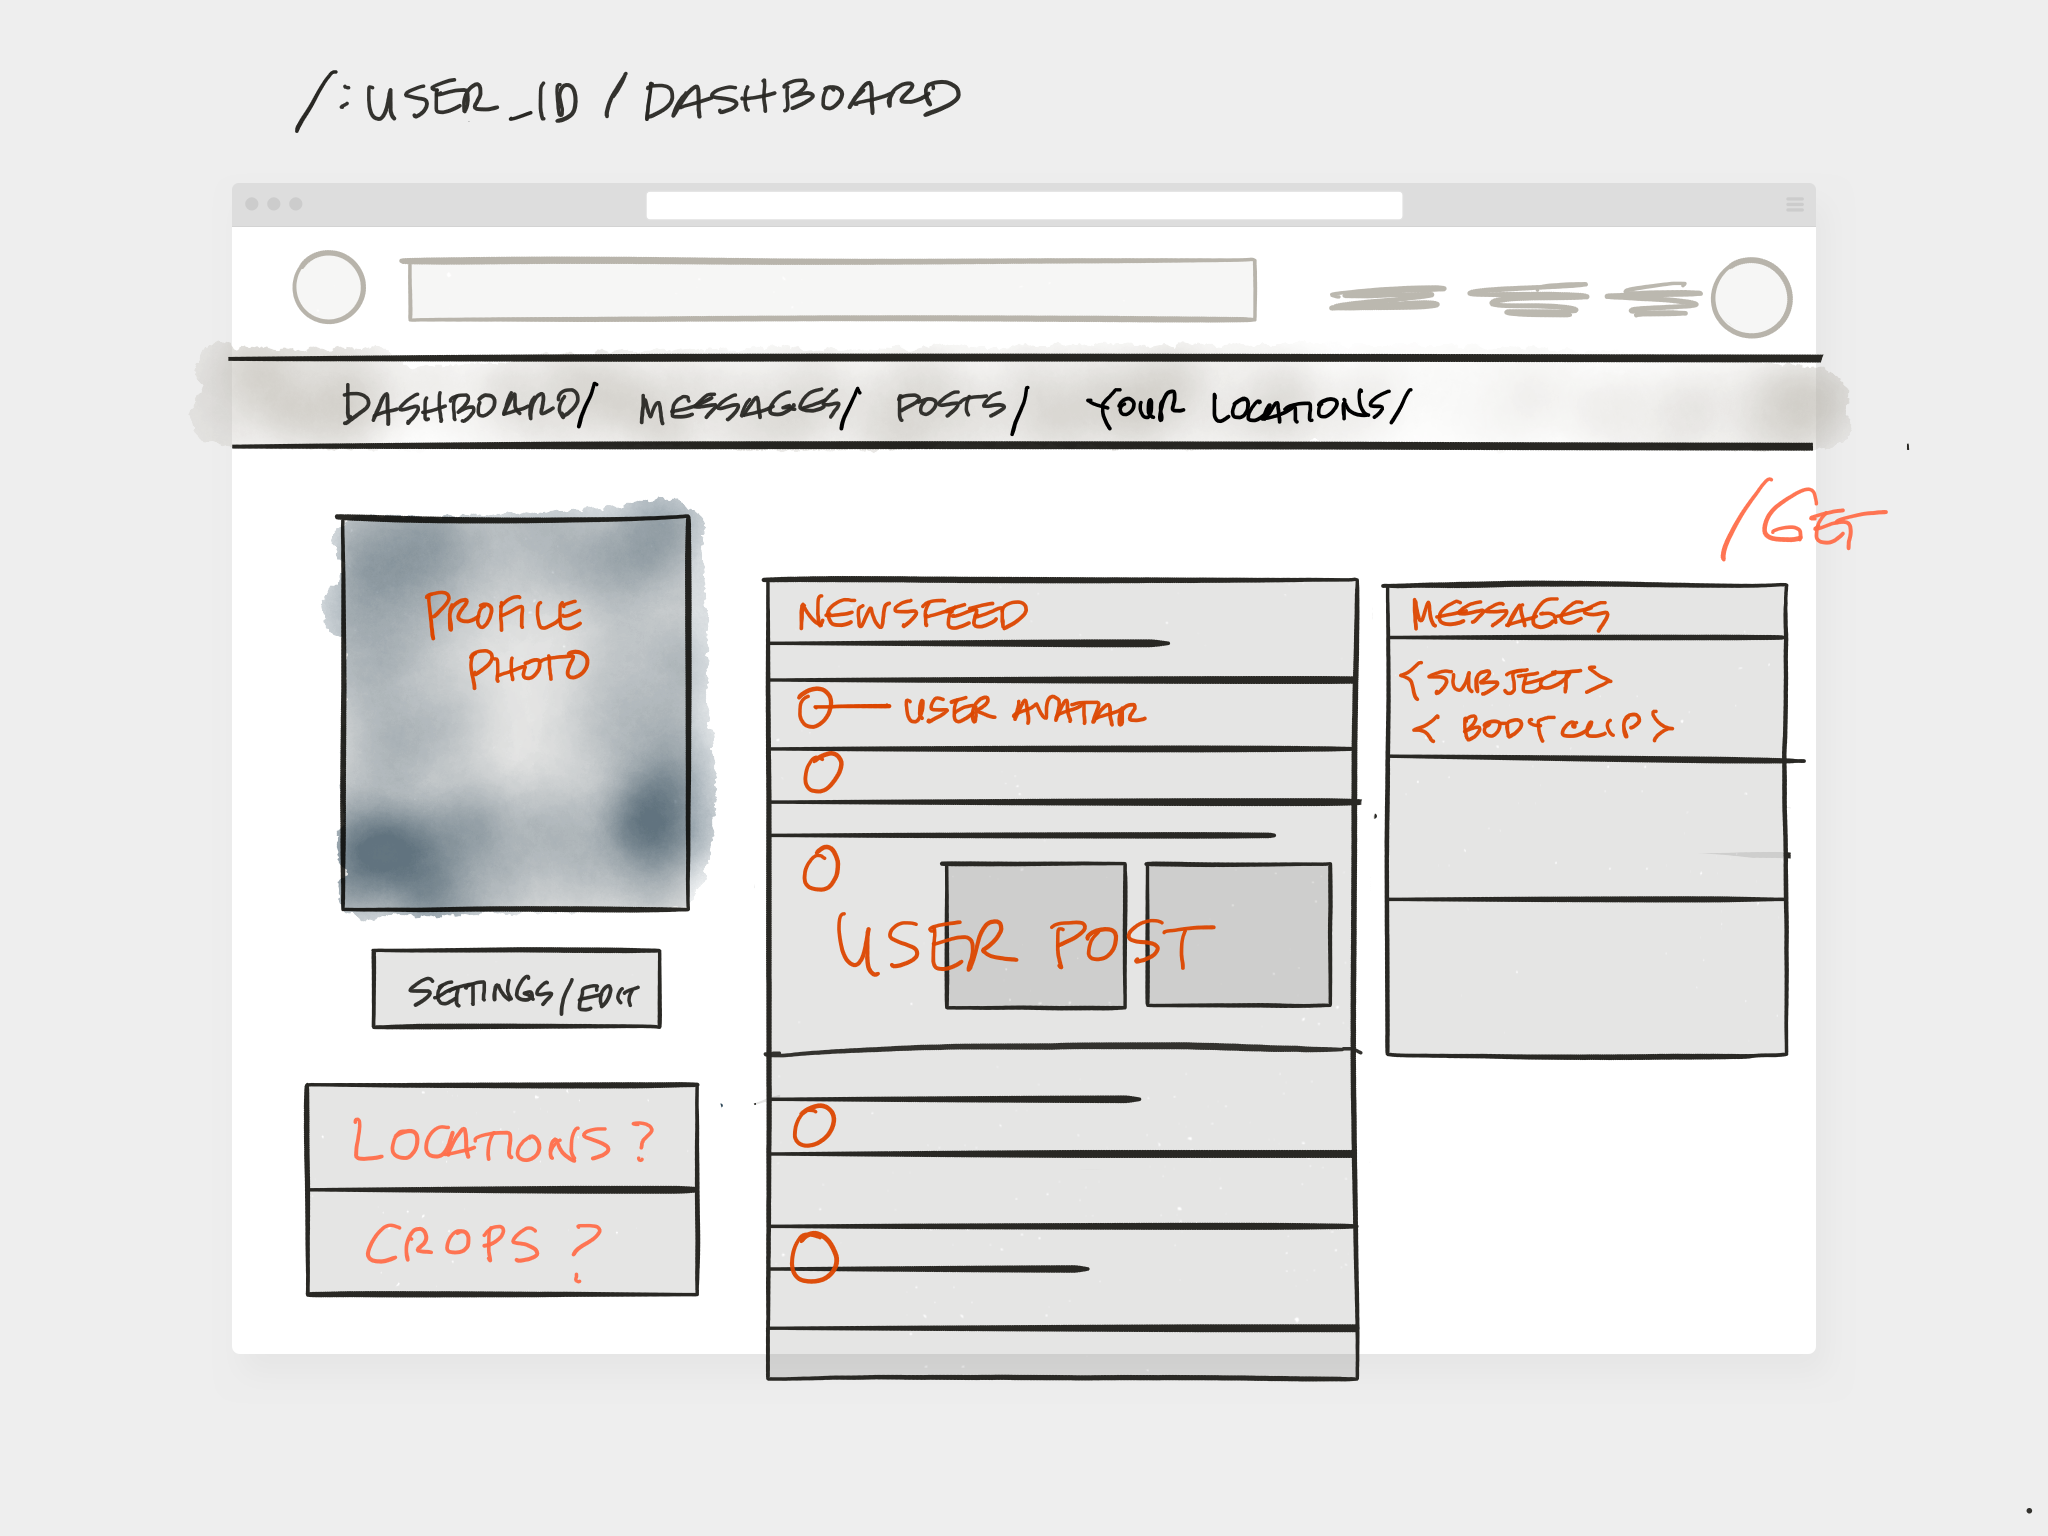 /:USER_ID/DASHBOARD
DASHBOARD/ MESSAGES/ POSTS/ YOUR LOCATIONS/
/GET
PROFILE
PHOTO
SETTINGS/EDIT
LOCATIONS?
CROPS?
NEWSFEED
USER AVATAR
USER POST
MESSAGES
<SUBJECT>
<BODY CLIP>